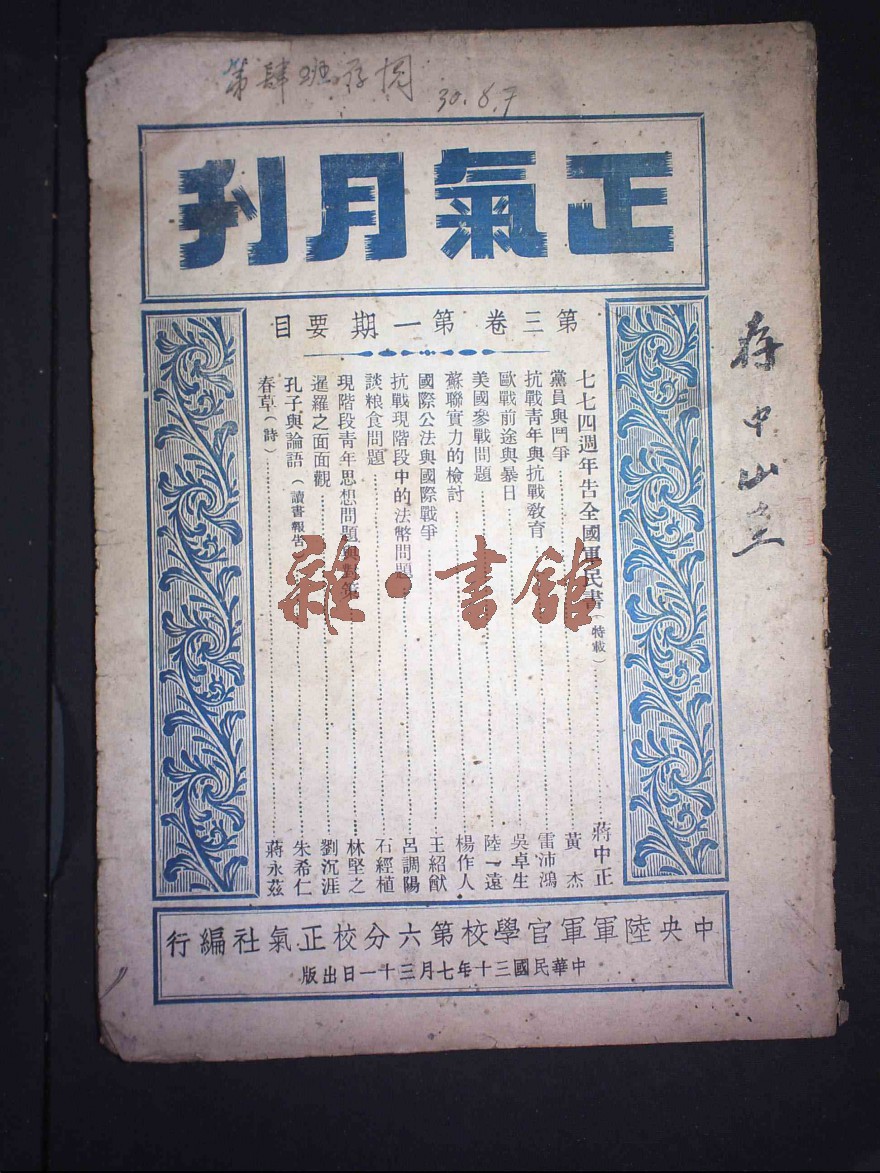 第肆班存閱
30.8.7
正氣月刊
第三卷 第一期 要目
七七四週年告全國軍民書(特載)……蔣中正
黨員與鬥爭……黃杰
抗戰青年與抗戰教育……雷沛鴻
歐戰前途與暴日……吳卓生
美國參戰問題……陸一遠
蘇聯實力的檢討……楊作人
國際公法與國際戰爭……王紹猷
抗戰現階段中的法幣問題……呂調陽
談粮食問題……石經植
現階段青年思想問題與對策……林堅之
暹羅之面面觀……劉沉涯
孔子與論語(讀書報告)……朱希仁
春草(詩)……蔣永茲
中央陸軍軍官學校第六分校正氣社編行
中華民國三十年七月三十一日出版
存中山室
雜·書館